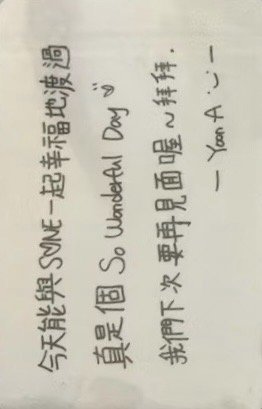 今天能與S♡NE一起幸福地渡過
真是個 So Wonderful Day ☺
我們下次要再見面喔~拜拜.
— Yoon A ·◡· —